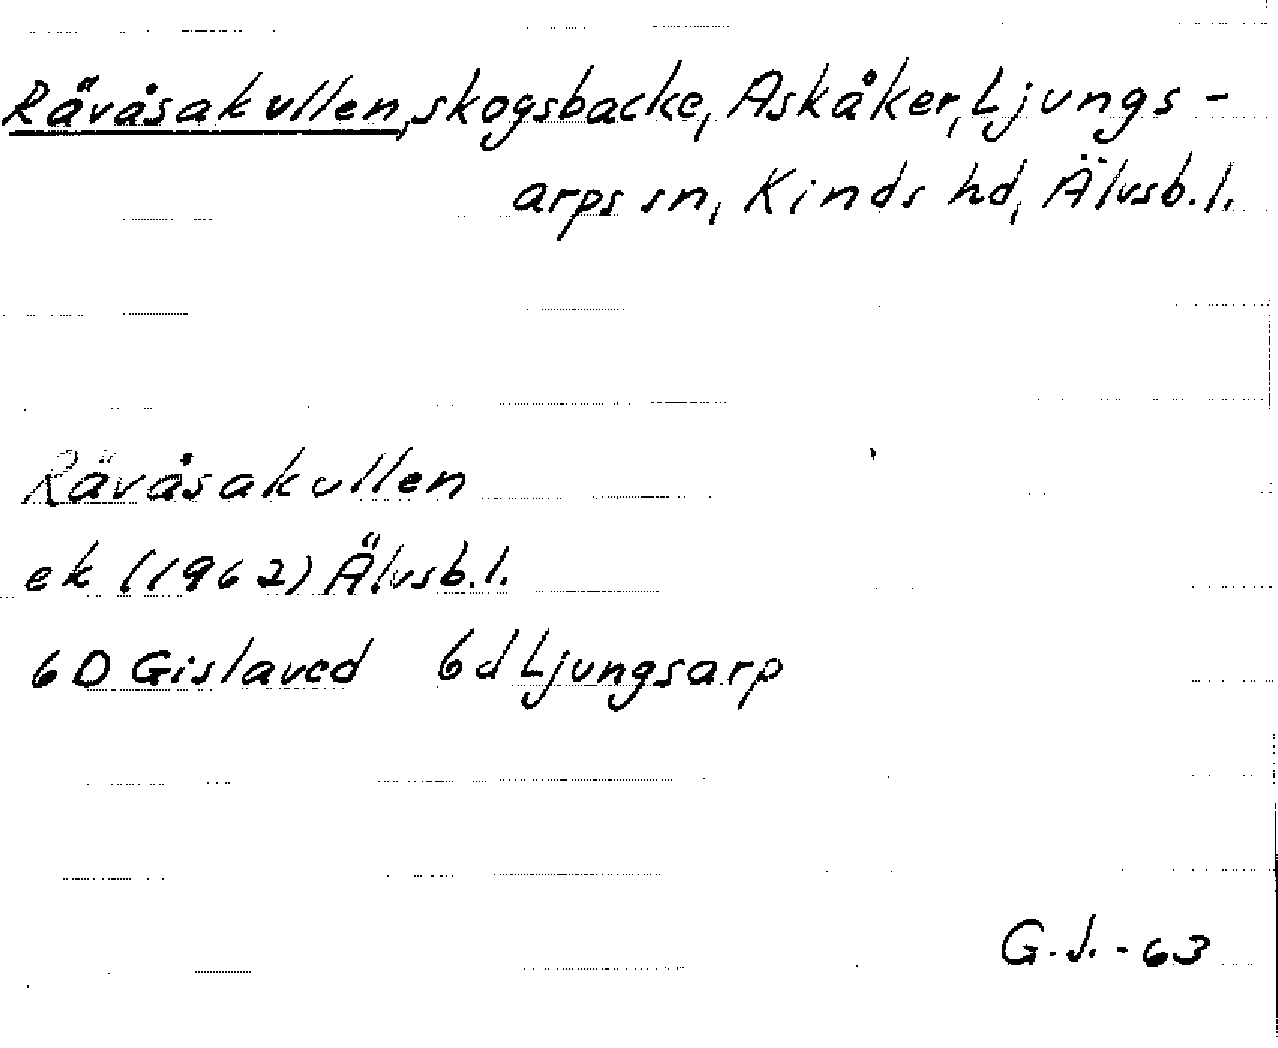 Rävåsakullen, skogsbacke, Askåker, Ljungs-
arps sn, Kinds hd, Älvsb.l.
Rävåsakullen
ek (1962) Älvsb.l.
6D Gislaved 6d Ljungsarp
G.J.-63